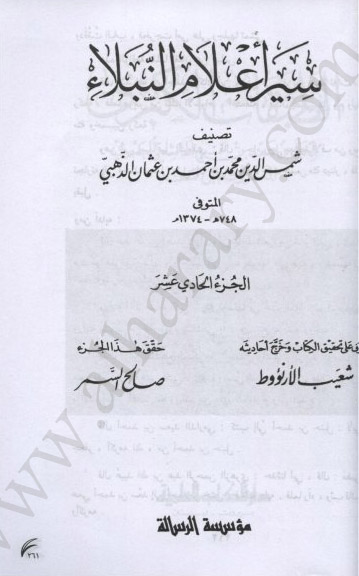 سير أعلام النبلاء
تصنيف
شمس الدين محمد بن أحمد بن عثمان الذهبي
المتوفى
٧٤٨هـ - ١٣٧٤م
الجزء الحادي عشر
على تحقيق الكتاب وخرج أحاديثه
شعيب الأرنؤوط
حقق هذا الجزء
صالح السمر
مؤسسة الرسالة
٢٦١
www.alharary.com